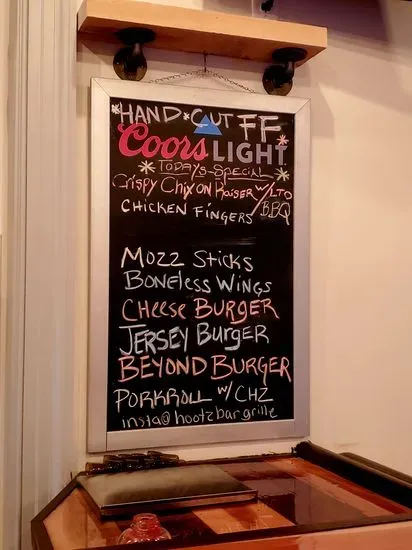 *HAND*CUT FF
Coors LIGHT
TODAY'S SPECIAL
Crispy Chix on Kaiser w/LTO
CHICKEN FINGERS BBQ
MOZZ STICKS
BONELESS WINGS
CHEESE BURGER
JERSEY BURGER
BEYOND BURGER
PORKROLL w/CHZ
insta@hootzbargrille